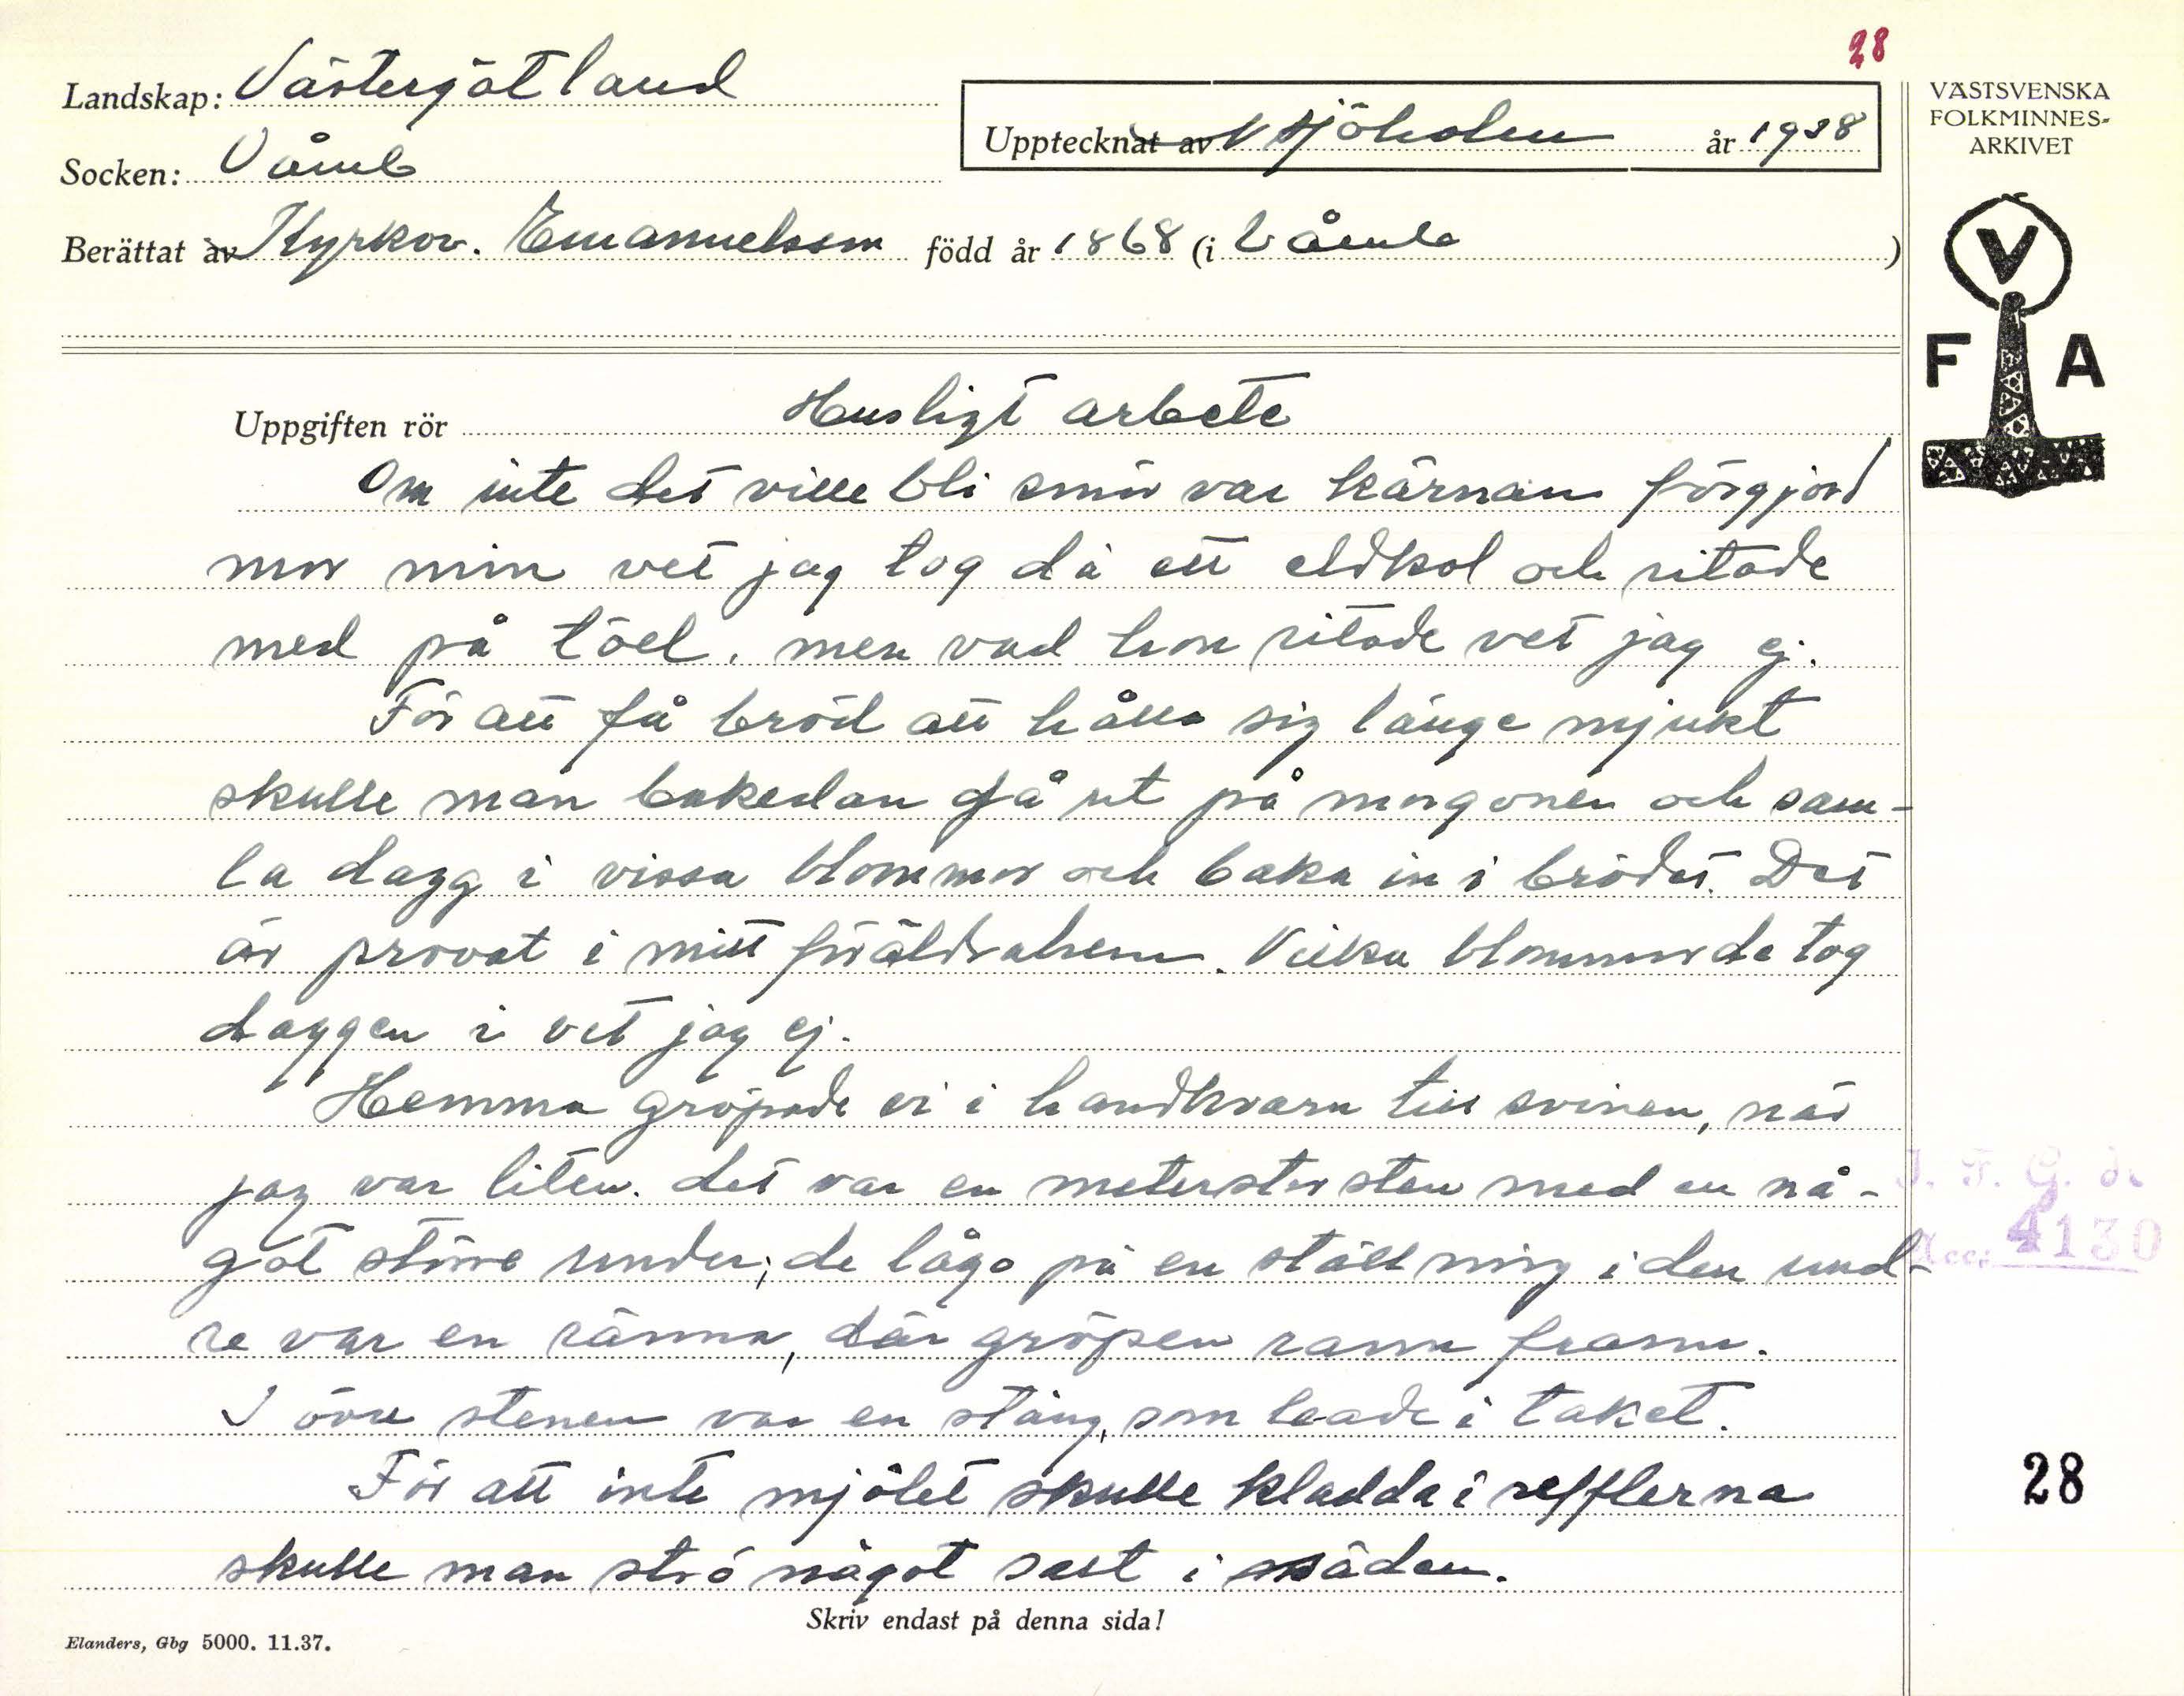 28
Landskap: Västergötland
Socken: Våmb
Upptecknat av N Sjöholm år 1938
Berättat av Kyrkov. Emanuelsson född år 1868 (i Våmb)
VÄSTSVENSKA
FOLKMINNES-
ARKIVET
V
F A
Uppgiften rör Husligt arbete
Om inte det ville bli smör var kärnan förgjord
mor min vet jag tog då ett eldkol och ritade
med på töel. men vad hon ritade vet jag ej.
För att få bröd att hålla sig länge mjukt
skulle man bakedan gå ut på morgonen och sam-
la dagg i vissa blommor och baka in i brödet. Det
är provat i mitt föräldrahem. Vilka blommor de tog
daggen i vet jag ej.
Hemma gröpade vi i handkvarn till svinen, när
jag var liten. det var en meterstor sten med en nå-
got större under; de lågo på en ställning i den und-
re var en ränna, där gröpen rann fram.
I övre stenen var en stång, som leade i taket.
För att inte mjölet skulle kladda i refflerna
skulle man strö något salt i säden.
I. F. G. ds
Acc: 4130
28
Skriv endast på denna sida!
Elanders, Gbg 5000. 11.37.